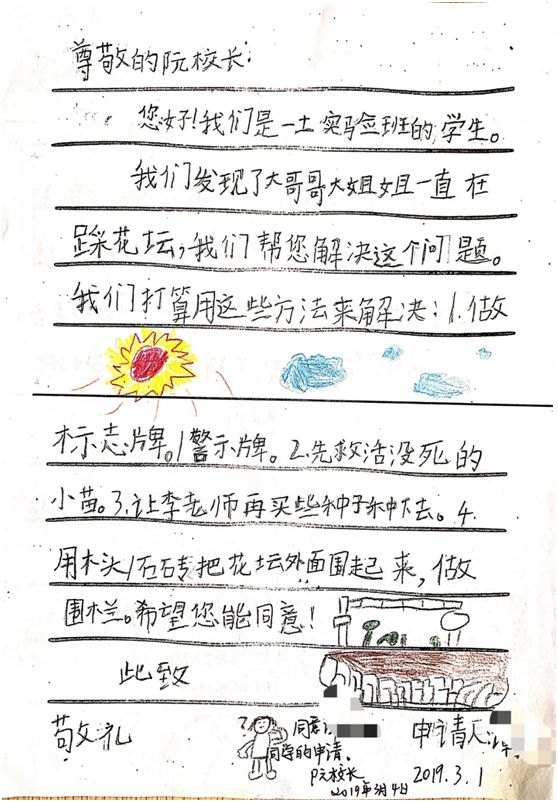 尊敬的阮校长:
您好!我们是一土实验班的学生。
我们发现了大哥哥大姐姐一直在
踩花坛,我们帮您解决这个问题。
我们打算用这些方法来解决:1.做
标志牌。/警示牌。2.先救活没死的
小苗。3.让李老师再买些种子种下去。4.
用木头/石砖把花坛外面围起来,做
围栏。希望您能同意!
此致
敬礼
同意
同学的申请。
阮校长
2019年3月4日
申请人:
2019.3.1